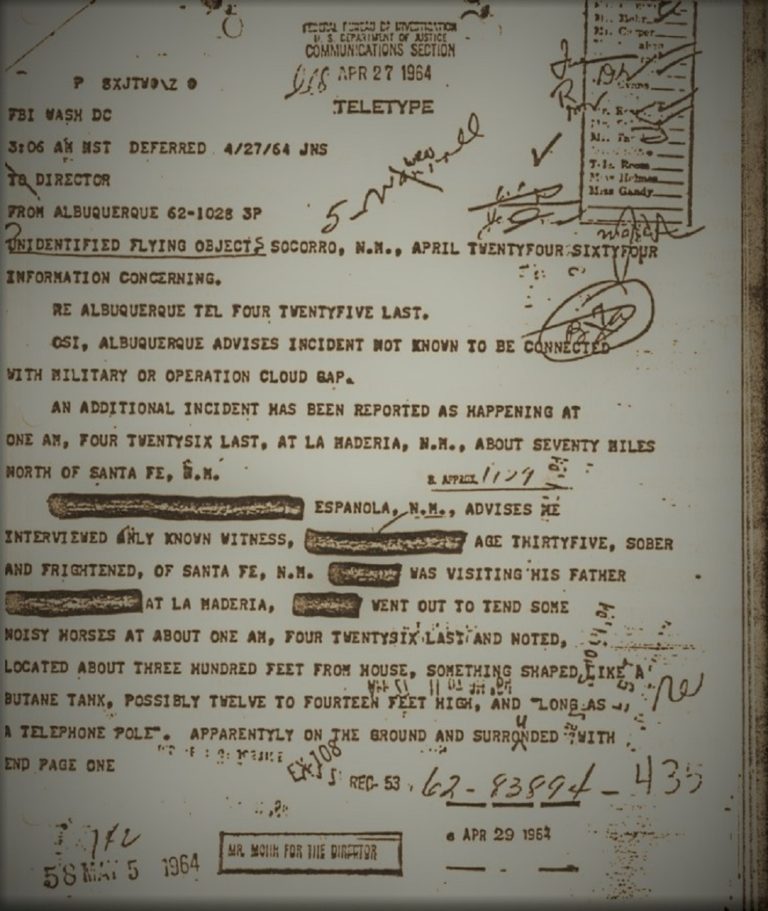 FEDERAL BUREAU OF INVESTIGATION
U. S. DEPARTMENT OF JUSTICE
COMMUNICATIONS SECTION
APR 27 1964
TELETYPE
Mr. Mohr
Mr. Casper
Evans
Tele. Room
Miss Holmes
Miss Gandy
FBI WASH DC
3:06 AM MST DEFERRED 4/27/64 JNS
TO DIRECTOR
FROM ALBUQUERQUE 62-1028 3P
UNIDENTIFIED FLYING OBJECTS SOCORRO, N.M., APRIL TWENTYFOUR SIXTYFOUR
INFORMATION CONCERNING.
RE ALBUQUERQUE TEL FOUR TWENTYFIVE LAST.
OSI, ALBUQUERQUE ADVISES INCIDENT NOT KNOWN TO BE CONNECTED
WITH MILITARY OR OPERATION CLOUD GAP.
AN ADDITIONAL INCIDENT HAS BEEN REPORTED AS HAPPENING AT
ONE AM, FOUR TWENTYSIX LAST, AT LA MADERIA, N.M., ABOUT SEVENTY MILES
NORTH OF SANTA FE, N.M.
ESPANOLA, N.M., ADVISES HE
INTERVIEWED ONLY KNOWN WITNESS, AGE THIRTYFIVE, SOBER
AND FRIGHTENED, OF SANTA FE, N.M. WAS VISITING HIS FATHER
AT LA MADERIA, WENT OUT TO TEND SOME
NOISY HORSES AT ABOUT ONE AM, FOUR TWENTYSIX LAST AND NOTED,
LOCATED ABOUT THREE HUNDRED FEET FROM HOUSE, SOMETHING SHAPED LIKE A
BUTANE TANK, POSSIBLY TWELVE TO FOURTEEN FEET HIGH, AND "LONG AS
A TELEPHONE POLE". APPARENTYLY ON THE GROUND AND SURRONDED WITH
END PAGE ONE
EX 108
REC- 53 62-83894-435
APR 29 1964
MR. MOHR FOR THE DIRECTOR
58 MAY 5 1964